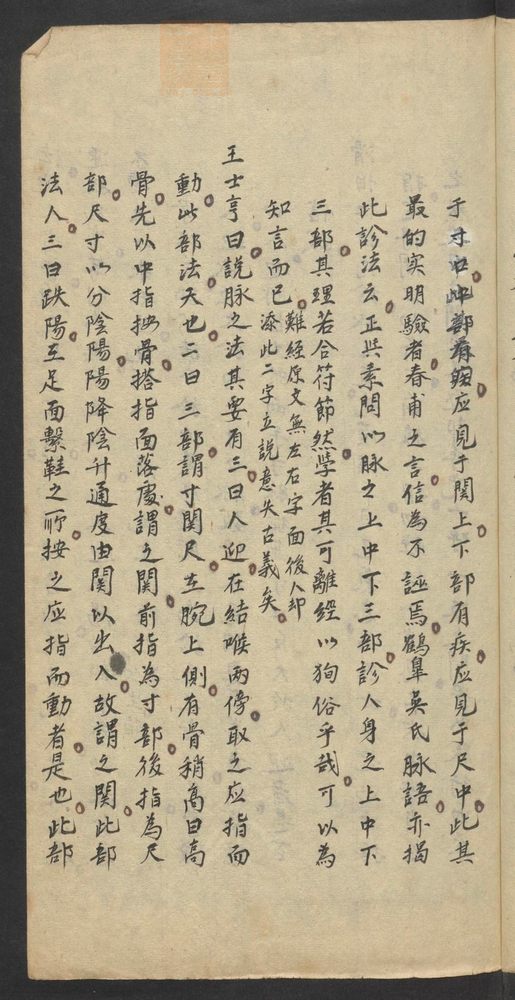 于寸口中部有病应見于関上下部有疾应見于尺中此其
最的实明驗者春甫之言信為不誣焉鶴臯吳氏脉語亦揭
此診法云正與素問以脉之上中下三部診人身之上中下
三部其理若合符節然学者其可離經以狥俗乎哉可以為
知言而已難經原文無左右字面後人却
添此二字立說意失古義矣
王士亨曰說脉之法其要有三曰人迎在結喉两傍取之应指而
動此部法天也二曰三部謂寸関尺在腕上側有骨稍高曰高
骨先以中指按骨搭指面落處謂之関前指為寸部後指為尺
部尺寸以分陰陽陽降陰升通度由関以出入故謂之関此部
法人三曰趺陽在足面繫鞋之所按之应指而動者是也此部